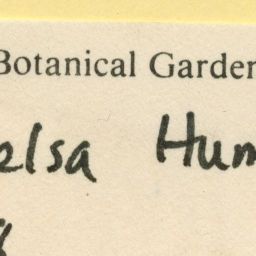 Botanical Garden
elsa Hum